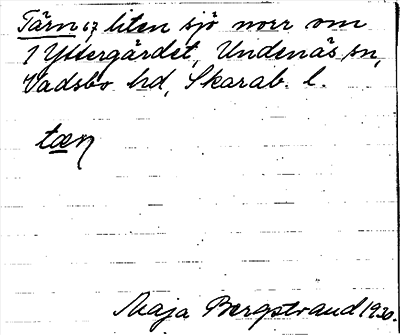 Tärn 67, liten sjö norr om
1 Yttergärdet, Undenäs sn,
Vadsbo hd, Skarab. l.
tæɳ
Maja Bergstrand 1930.